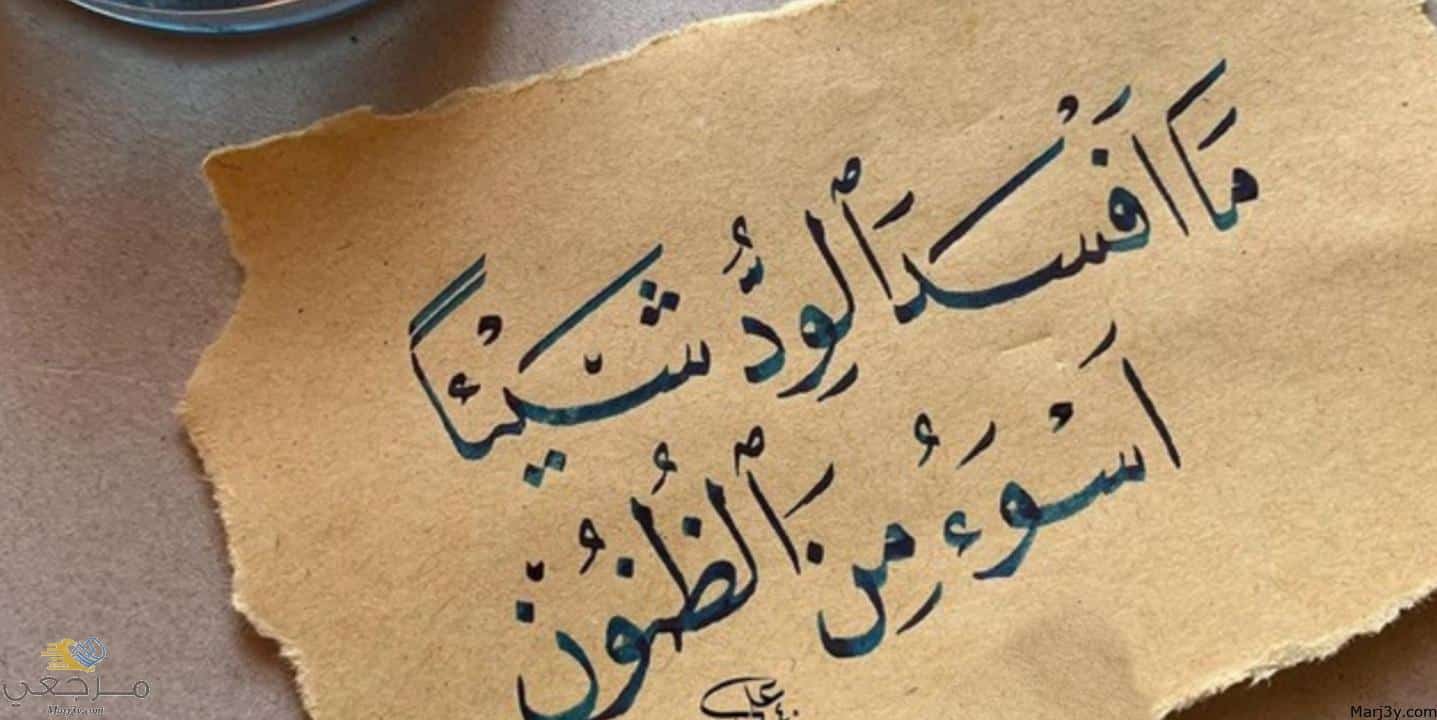 مَا اَفْسَدَ ٱلوِدُّ شَيْئاً
اَسْوَءُ مِنَ ٱلظُنُونْ
مرجعي
Marj3y.com
Marj3y.com